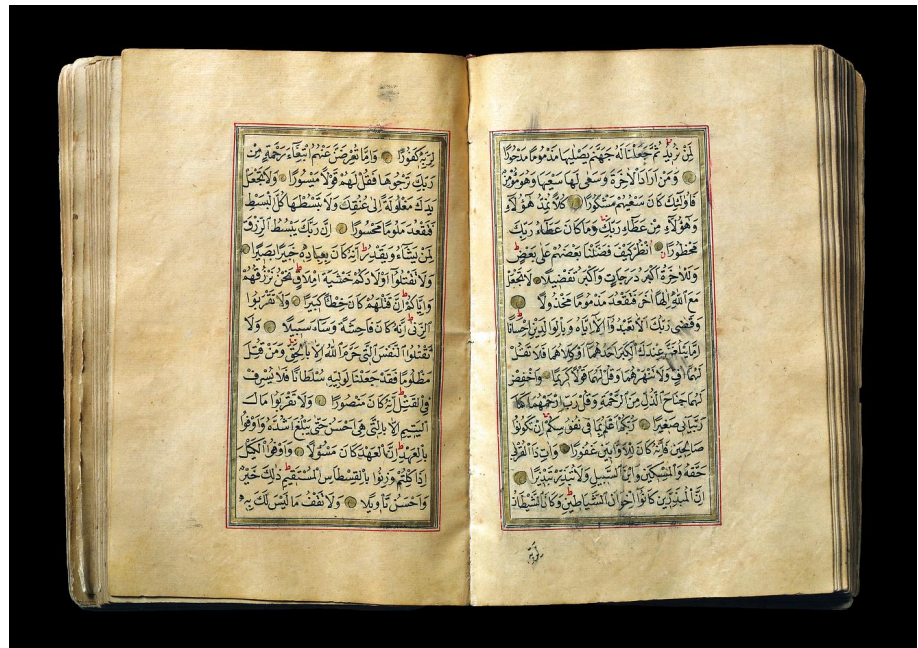 لِمَنْ نُرِيدُ ثُمَّ جَعَلْنَا لَهُ جَهَنَّمَ يَصْلٰيهَا مَذْمُومًا مَدْحُورًا
وَمَنْ اَرَادَ الْاٰخِرَةَ وَسَعٰى لَهَا سَعْيَهَا وَهُوَ مُؤْمِنٌ
فَاُولٰئِكَ كَانَ سَعْيُهُمْ مَشْكُورًا كُلًّا نُمِدُّ هٰؤُلَاءِ
وَهٰؤُلَاءِ مِنْ عَطَاءِ رَبِّكَ وَمَا كَانَ عَطَاءُ رَبِّكَ
مَحْظُورًا اُنْظُرْ كَيْفَ فَضَّلْنَا بَعْضَهُمْ عَلٰى بَعْضٍ
وَلَلْاٰخِرَةُ اَكْبَرُ دَرَجَاتٍ وَاَكْبَرُ تَفْضِيلًا لَا تَجْعَلْ
مَعَ اللّٰهِ اِلٰهًا اٰخَرَ فَتَقْعُدَ مَذْمُومًا مَخْذُولًا
وَقَضٰى رَبُّكَ اَلَّا تَعْبُدُوا اِلَّا اِيَّاهُ وَبِالْوَالِدَيْنِ اِحْسَانًا
اِمَّا يَبْلُغَنَّ عِنْدَكَ الْكِبَرَ اَحَدُهُمَا اَوْ كِلَاهُمَا فَلَا تَقُلْ
لَهُمَا اُفٍّ وَلَا تَنْهَرْهُمَا وَقُلْ لَهُمَا قَوْلًا كَرِيمًا وَاخْفِضْ
لَهُمَا جَنَاحَ الذُّلِّ مِنَ الرَّحْمَةِ وَقُلْ رَبِّ ارْحَمْهُمَا كَمَا
رَبَّيَانِي صَغِيرًا رَبُّكُمْ اَعْلَمُ بِمَا فِي نُفُوسِكُمْ اِنْ تَكُونُوا
صَالِحِينَ فَاِنَّهُ كَانَ لِلْاَوَّابِينَ غَفُورًا وَاٰتِ ذَا الْقُرْبٰى
حَقَّهُ وَالْمِسْكِينَ وَابْنَ السَّبِيلِ وَلَا تُبَذِّرْ تَبْذِيرًا
اِنَّ الْمُبَذِّرِينَ كَانُوا اِخْوَانَ الشَّيَاطِينِ وَكَانَ الشَّيْطَانُ
لِرَبِّهِ
لِرَبِّهِ كَفُورًا وَاِمَّا تُعْرِضَنَّ عَنْهُمُ ابْتِغَاءَ رَحْمَةٍ مِنْ
رَبِّكَ تَرْجُوهَا فَقُلْ لَهُمْ قَوْلًا مَيْسُورًا وَلَا تَجْعَلْ
يَدَكَ مَغْلُولَةً اِلٰى عُنُقِكَ وَلَا تَبْسُطْهَا كُلَّ الْبَسْطِ
فَتَقْعُدَ مَلُومًا مَحْسُورًا اِنَّ رَبَّكَ يَبْسُطُ الرِّزْقَ
لِمَنْ يَشَاءُ وَيَقْدِرُ اِنَّهُ كَانَ بِعِبَادِهِ خَبِيرًا بَصِيرًا
وَلَا تَقْتُلُوا اَوْلَادَكُمْ خَشْيَةَ اِمْلَاقٍ نَحْنُ نَرْزُقُهُمْ
وَاِيَّاكُمْ اِنَّ قَتْلَهُمْ كَانَ خِطْئًا كَبِيرًا وَلَا تَقْرَبُوا
الزِّنٰى اِنَّهُ كَانَ فَاحِشَةً وَسَاءَ سَبِيلًا وَلَا
تَقْتُلُوا النَّفْسَ الَّتِي حَرَّمَ اللّٰهُ اِلَّا بِالْحَقِّ وَمَنْ قُتِلَ
مَظْلُومًا فَقَدْ جَعَلْنَا لِوَلِيِّهِ سُلْطَانًا فَلَا يُسْرِفْ
فِي الْقَتْلِ اِنَّهُ كَانَ مَنْصُورًا وَلَا تَقْرَبُوا مَالَ
الْيَتِيمِ اِلَّا بِالَّتِي هِيَ اَحْسَنُ حَتّٰى يَبْلُغَ اَشُدَّهُ وَاَوْفُوا
بِالْعَهْدِ اِنَّ الْعَهْدَ كَانَ مَسْؤُلًا وَاَوْفُوا الْكَيْلَ
اِذَا كِلْتُمْ وَزِنُوا بِالْقِسْطَاسِ الْمُسْتَقِيمِ ذٰلِكَ خَيْرٌ
وَاَحْسَنُ تَأْوِيلًا وَلَا تَقْفُ مَا لَيْسَ لَكَ بِهِ